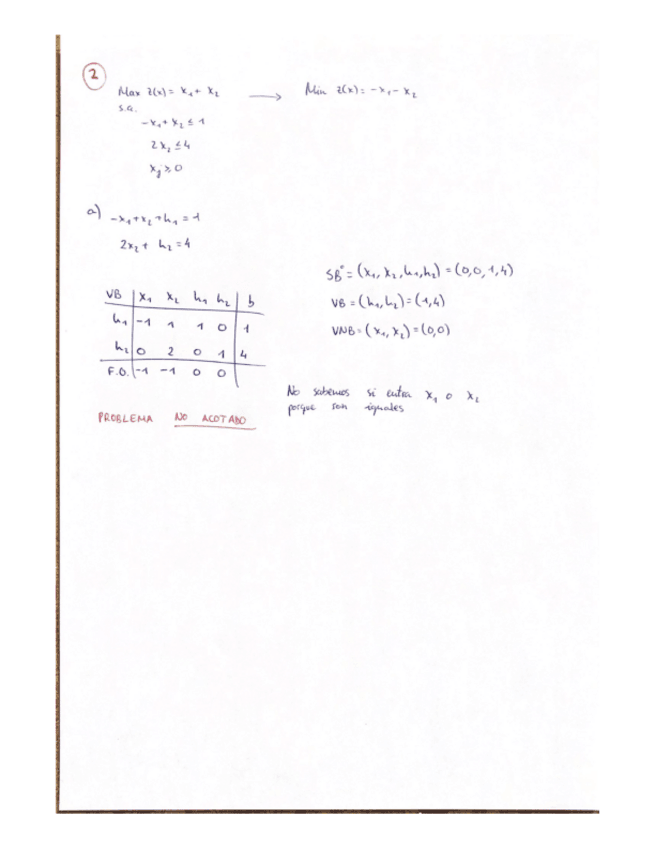 2
Max z(x) = x₁ + x₂ → Min z(x) = -x₁ - x₂
s.a.
-x₁ + x₂ ≤ 1
2x₂ ≤ 4
xⱼ ≥ 0
a) -x₁ + x₂ + h₁ = 1
2x₂ + h₂ = 4
SB⁰ = (x₁, x₂, h₁, h₂) = (0,0,1,4)
VB = (h₁, h₂) = (1,4)
VNB = (x₁, x₂) = (0,0)
VB x₁ x₂ h₁ h₂ b
h₁ -1 1 1 0 1
h₂ 0 2 0 1 4
F.O. -1 -1 0 0
No sabemos si entra x₁ o x₂
porque son iguales
PROBLEMA NO ACOTADO